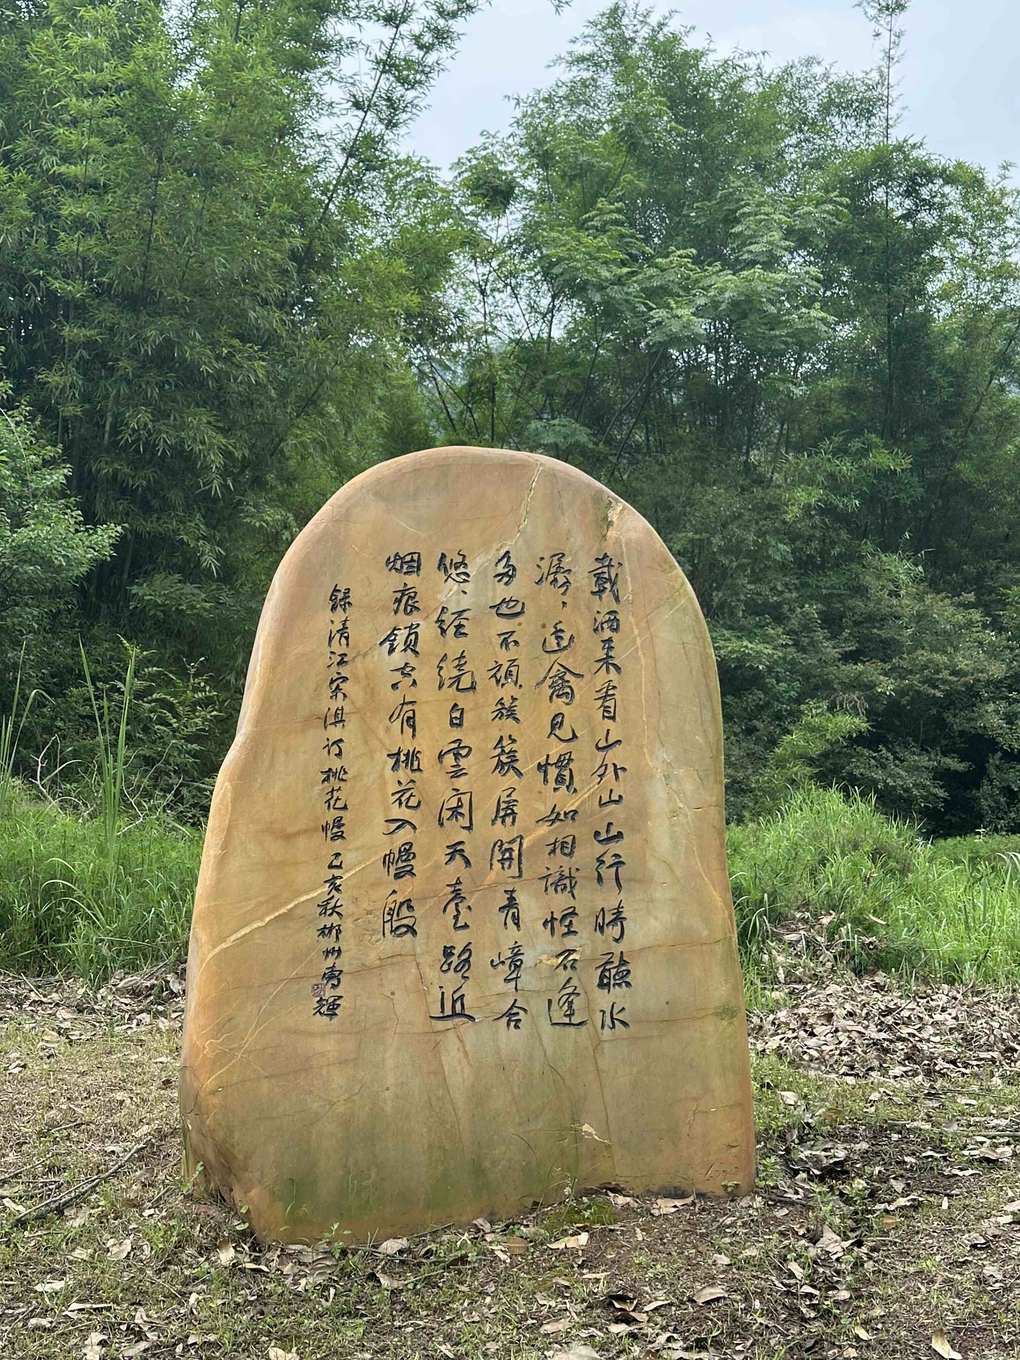 載酒来看山外山山行時聽水
潺潺幽禽見慣如相識怪石逢
多也不頑簇簇屏開青嶂合
悠悠経繞白雲闲天臺路近
烟痕鎖只有桃花入幔般
録清江宋淇訂桃花幔乙亥秋郴州輝